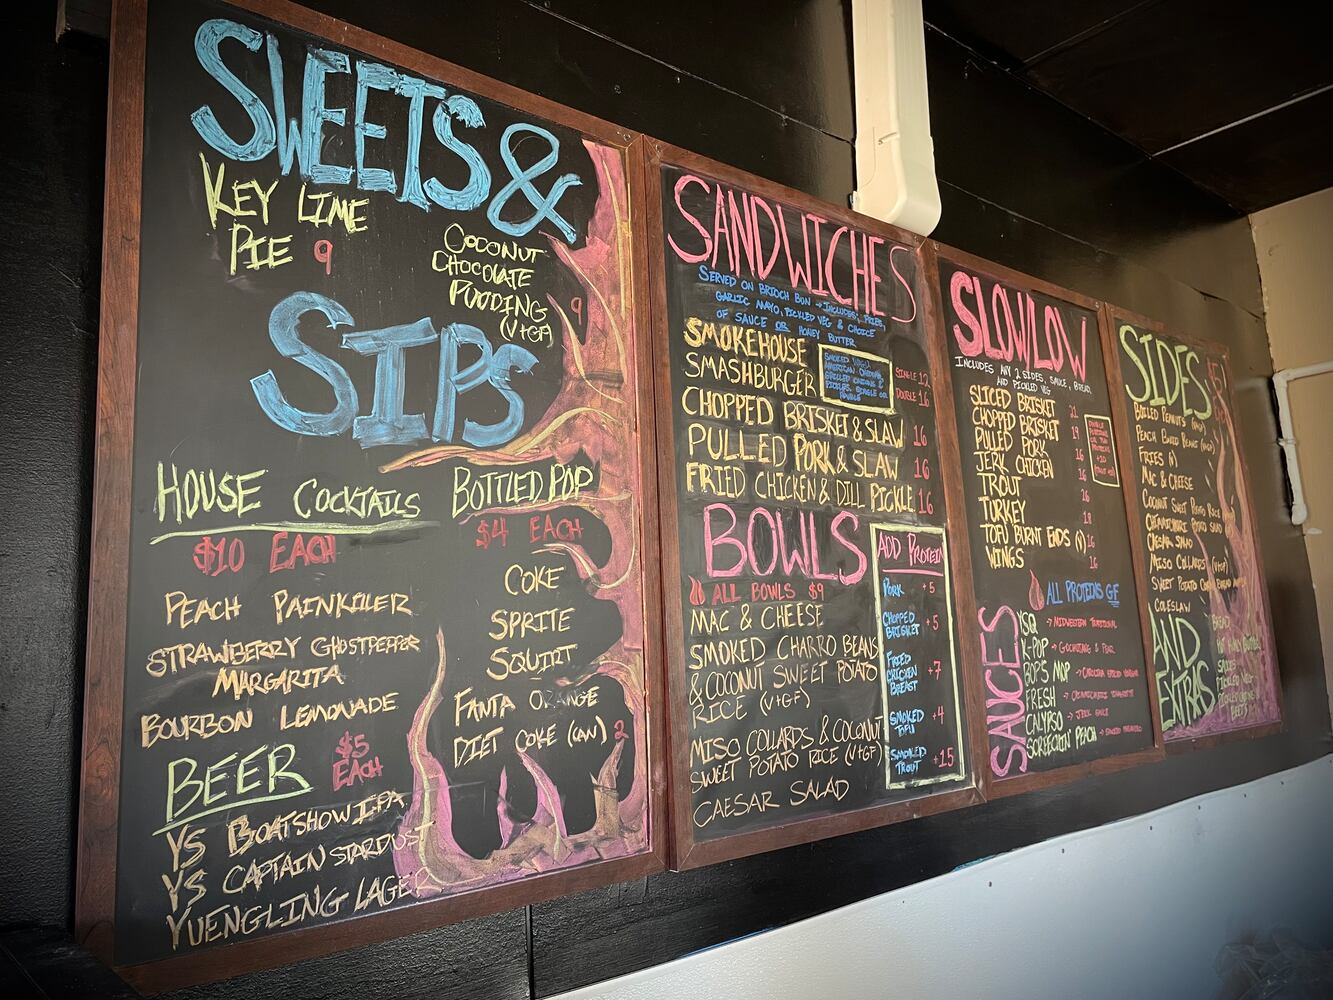 SWEETS &
KEY LIME
PIE 9
COCONUT
CHOCOLATE
PUDDING 9
(V+GF)
SIPS
HOUSE COCKTAILS
$10 EACH
PEACH PAINKILLER
STRAWBERRY GHOSTPEPPER
MARGARITA
BOURBON LEMONADE
BEER $5
EACH
YS BOATSHOW IPA
YS CAPTAIN STARDUST
YUENGLING LAGER
BOTTLED POP
$4 EACH
COKE
SPRITE
SQUIRT
FANTA ORANGE
DIET COKE (CAN) 2
SANDWICHES
SERVED ON BRIOCH BUN → INCLUDES; FRIES,
GARLIC MAYO, PICKLED VEG & CHOICE
OF SAUCE OR HONEY BUTTER
SMOKEHOUSE
SMASHBURGER
AMERICAN
GRILLED ONIONS &
PICKLES. SINGLE OR
DOUBLE
SINGLE 12
DOUBLE 16
CHOPPED BRISKET & SLAW 16
PULLED PORK & SLAW 16
FRIED CHICKEN & DILL PICKLE 16
BOWLS
ALL BOWLS $9
MAC & CHEESE
SMOKED CHARRO BEANS
& COCONUT SWEET POTATO
RICE (V+GF)
MISO COLLARDS & COCONUT
SWEET POTATO RICE (V+GF)
CAESAR SALAD
ADD PROTEIN
PORK +5
CHOPPED
BRISKET +5
FRIED
CHICKEN
BREAST +7
SMOKED
TOFU +4
SMOKED
TROUT +15
SLOW/LOW
INCLUDES ANY 2 SIDES, SAUCE, BREAD,
AND PICKLED VEG
SLICED BRISKET 21
CHOPPED BRISKET 19
PULLED PORK 16
JERK CHICKEN 16
TROUT
TURKEY 18
TOFU BURNT ENDS (V) 16
WINGS 16
ALL PROTEINS GF
SAUCES
YSQ → MIDWESTERN TRADITIONAL
K-POP → GOCHUJANG & PEAR
BOP'S MOP → CAROLINA SPICED VINEGAR
FRESH → CHIMICHURRI
CALYPSO → JERK SAUCE
SCREECHIN' PEACH →
SIDES
BOILED PEANUTS
PEACH BAKED BEANS
FRIES (V)
MAC & CHEESE
COCONUT SWEET POTATO RICE
CAESAR SALAD
MISO COLLARDS (V+GF)
SWEET POTATO
COLESLAW
AND
EXTRAS
BREAD
HOT HONEY BUTTER
SAUCES
PICKLED VEG
BEETS